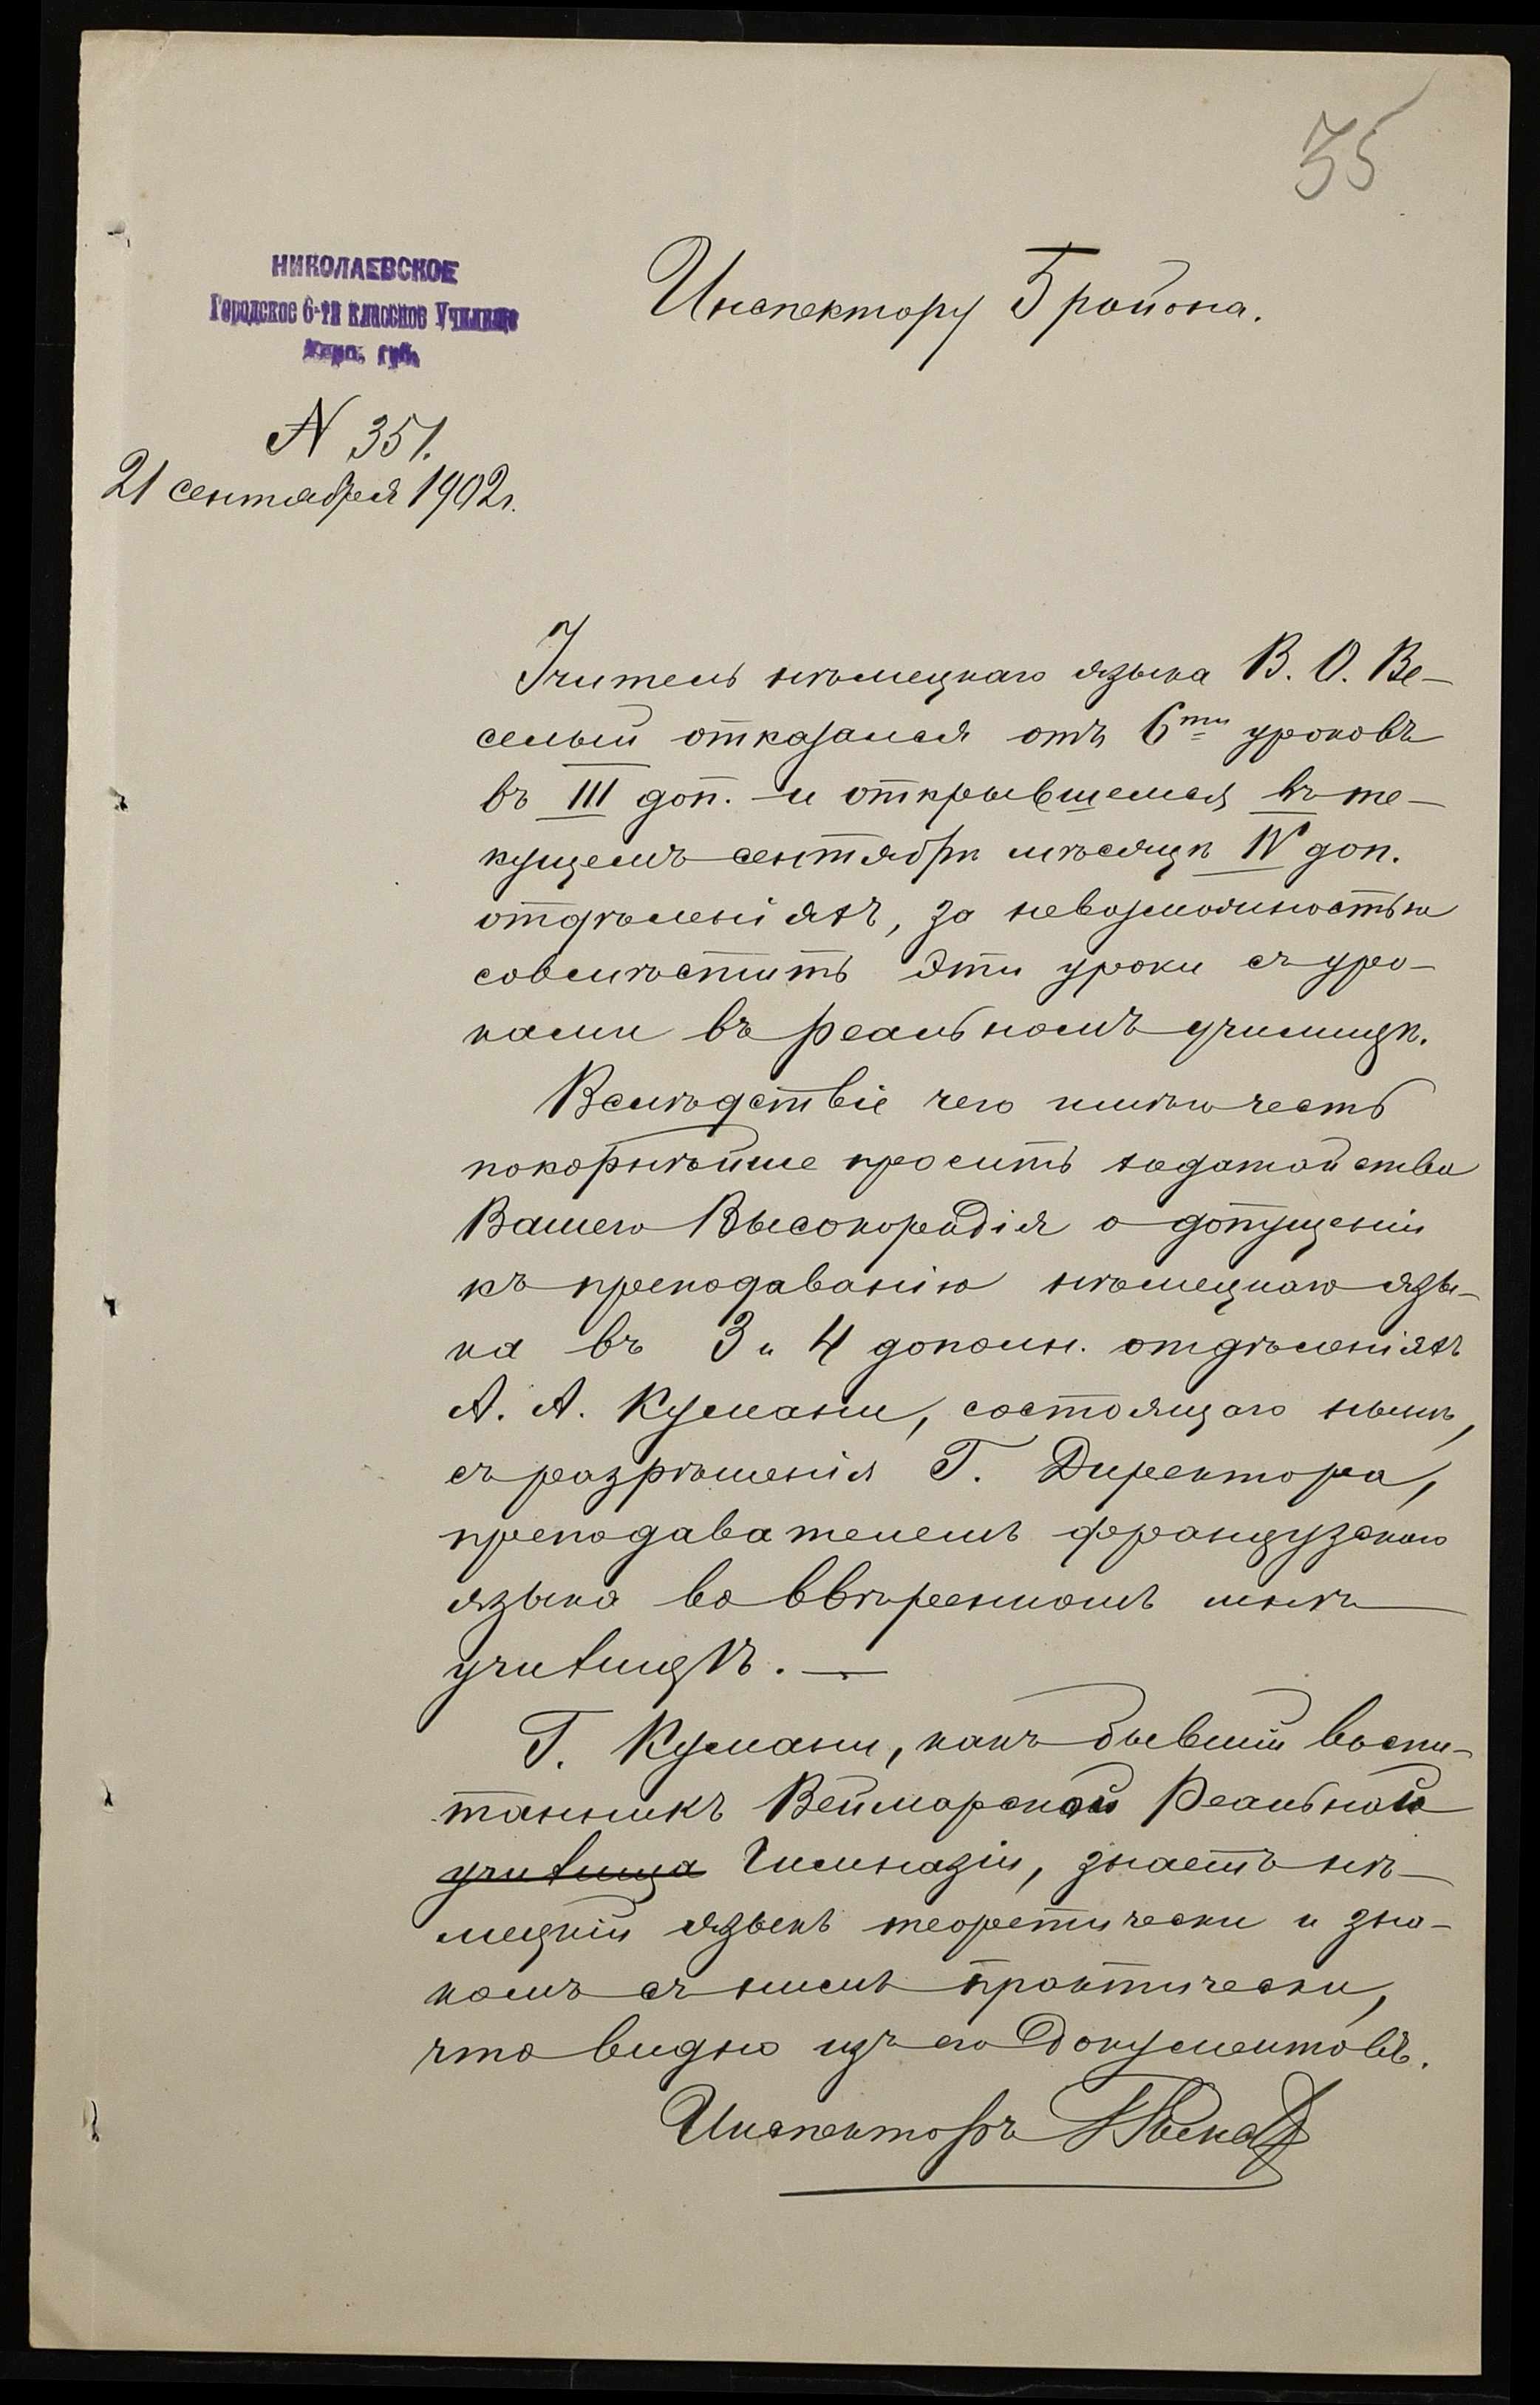 35
НИКОЛАЕВСКОЕ
Городское 6-ти классное Училище
Херс. губ.
Инспектору 5 района.
N 351.
21 сентября 1902 г.
Учитель нѣмецкаго языка В. О. Ве-
селый отказался отъ 6ти уроковъ
въ III доп. и открывшемся въ те-
кущемъ сентябрѣ мѣсяцѣ IV доп.
отдѣленіяхъ, за невозможностью
совмѣстить эти уроки съ уро-
ками въ реальномъ училищѣ.
Вслѣдствіе чего имѣю честь
покорнѣйше просить ходатайства
Вашего Высокородія о допущеніи
къ преподаванію нѣмецкаго язы-
ка въ 3 и 4 дополн. отдѣленіяхъ
А. А. Кумани, состоящаго нынѣ,
съ разрѣшенія Г. Директора,
преподавателемъ французскаго
языка во ввѣренномъ мнѣ
училищѣ. —
Г. Кумани, какъ бывшій воспи-
танникъ Веймарской Реальной
училища Гимназіи, знаетъ нѣ-
мецкій языкъ теоретически и зна-
комъ съ нимъ практически,
что видно изъ его документовъ.
Инспекторъ